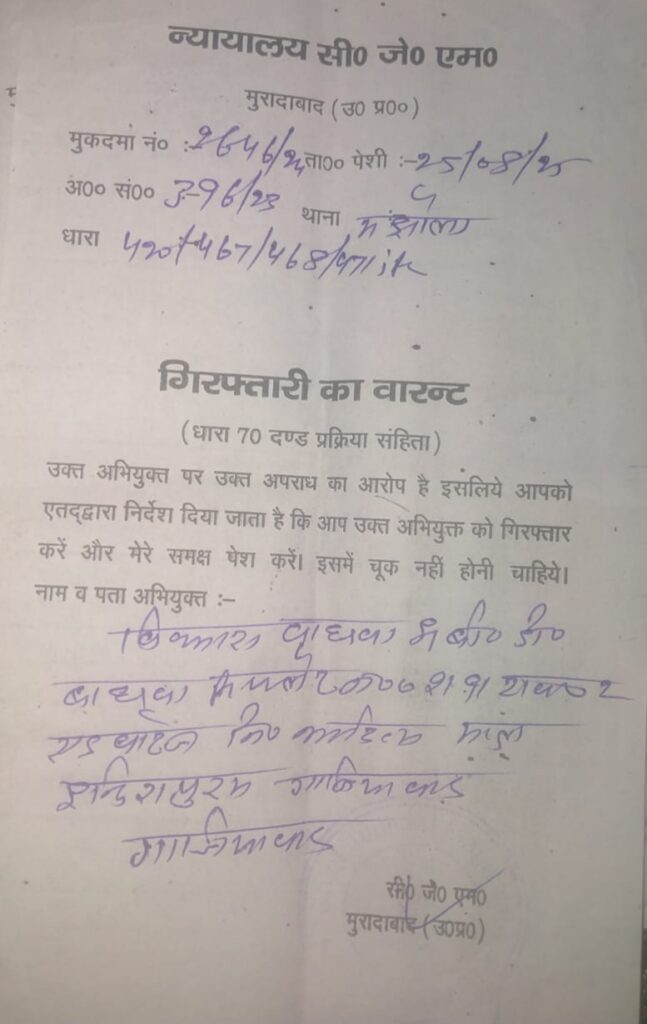 न्यायालय सी0 जे0 एम0
मुरादाबाद (उ0 प्र0०)
मुकदमा नं० :- 2646/24 ता०० पेशी :- 25/08/25
अ०० सं०० 396/23 थाना मंझोला
धारा 420/467/468/471 
गिरफ्तारी का वारन्ट
(धारा 70 दण्ड प्रक्रिया संहिता)
उक्त अभियुक्त पर उक्त अपराध का आरोप है इसलिये आपको
एतद्द्वारा निर्देश दिया जाता है कि आप उक्त अभियुक्त को गिरफ्तार
करें और मेरे समक्ष पेश करें। इसमें चूक नहीं होनी चाहिये।
नाम व पता अभियुक्त :–
विकास वाधवा
वाधवा
इन्दिरापुरम गाजियाबाद
गाजियाबाद
सी0 जे0 एम0
मुरादाबाद (उ0प्र0)